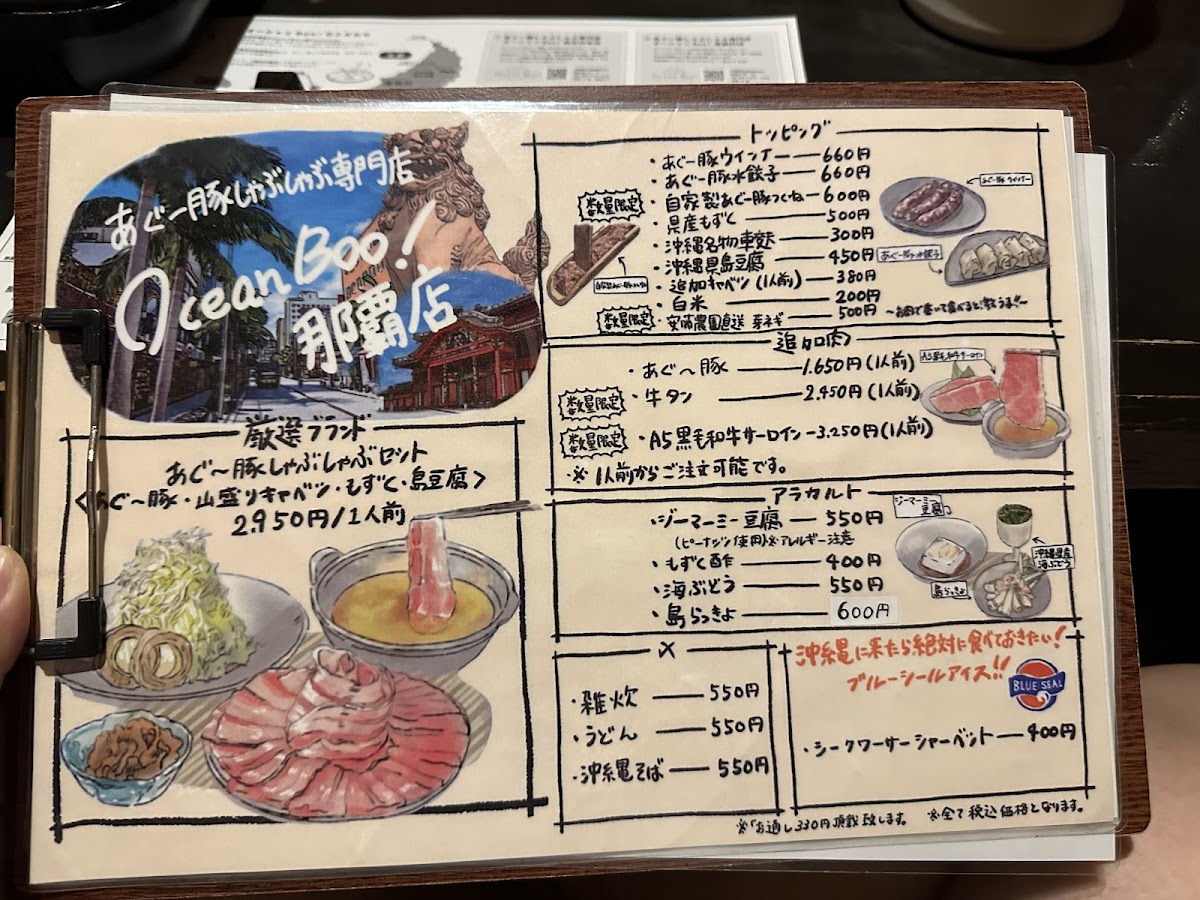 あぐー豚しゃぶしゃぶ専門店
Ocean Boo!
那覇店
厳選ブランド
あぐ〜豚しゃぶしゃぶセット
<あぐ〜豚・山盛りキャベツ・もずく・島豆腐>
2.950円/1人前
トッピング
・あぐー豚ウインナー 660円
・あぐー豚水餃子 660円
数量限定
・自家製あぐー豚つくね 600円
・県産もずく 500円
・沖縄名物車麩 300円
・沖縄県島豆腐 450円
・追加キャベツ(1人前) 380円
・白米 200円
数量限定
・安藤農園直送 芽ネギ 500円 〜お肉で巻いて食べると激うま!!〜
あぐー豚ウインナー
あぐー豚水餃子
追加肉
・あぐ〜豚 1.650円(1人前)
数量限定
・牛タン 2.450円(1人前)
数量限定
・A5黒毛和牛サーロイン 3.250円(1人前)
・※1人前からご注文可能です。
A5黒毛和牛サーロイン
アラカルト
・ジーマーミー豆腐 550円
(ピーナッツ使用)※アレルギー注意
・もずく酢 400円
・海ぶどう 550円
・島らっきょ 600円
ジーマーミー
豆腐
沖縄県産
海ぶどう
島らっきょ
〆
・雑炊 550円
・うどん 550円
・沖縄そば 550円
沖縄に来たら絶対に食べておきたい!
ブルーシールアイス!!
BLUE SEAL
・シークワーサーシャーベット 400円
※「お通し330円頂戴致します。
※全て税込価格となります。